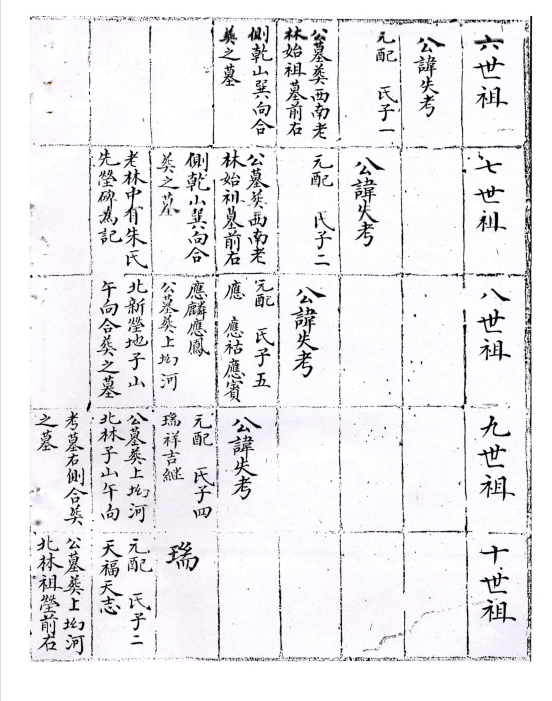 六世祖
公諱失考
元配　氏子一
公墓葬西南老
林始祖墓前右
側乾山巽向合
葬之墓
七世祖
公諱失考
元配　氏子二
公墓葬西南老
林始祖墓前右
側乾山巽向合
葬之墓
老林中有朱氏
先塋碑為記
八世祖
公諱失考
元配　氏子五
應　應祜應賓
應麟應鳳
公墓葬上坮河
北新塋地子山
午向合葬之墓
九世祖
公諱失考
元配　氏子四
瑞祥吉継
公墓葬上坮河
北林子山午向
考墓右側合葬
之墓
十世祖
瑞
元配　氏子二
天福天志
公墓葬上坮河
北林祖塋前右